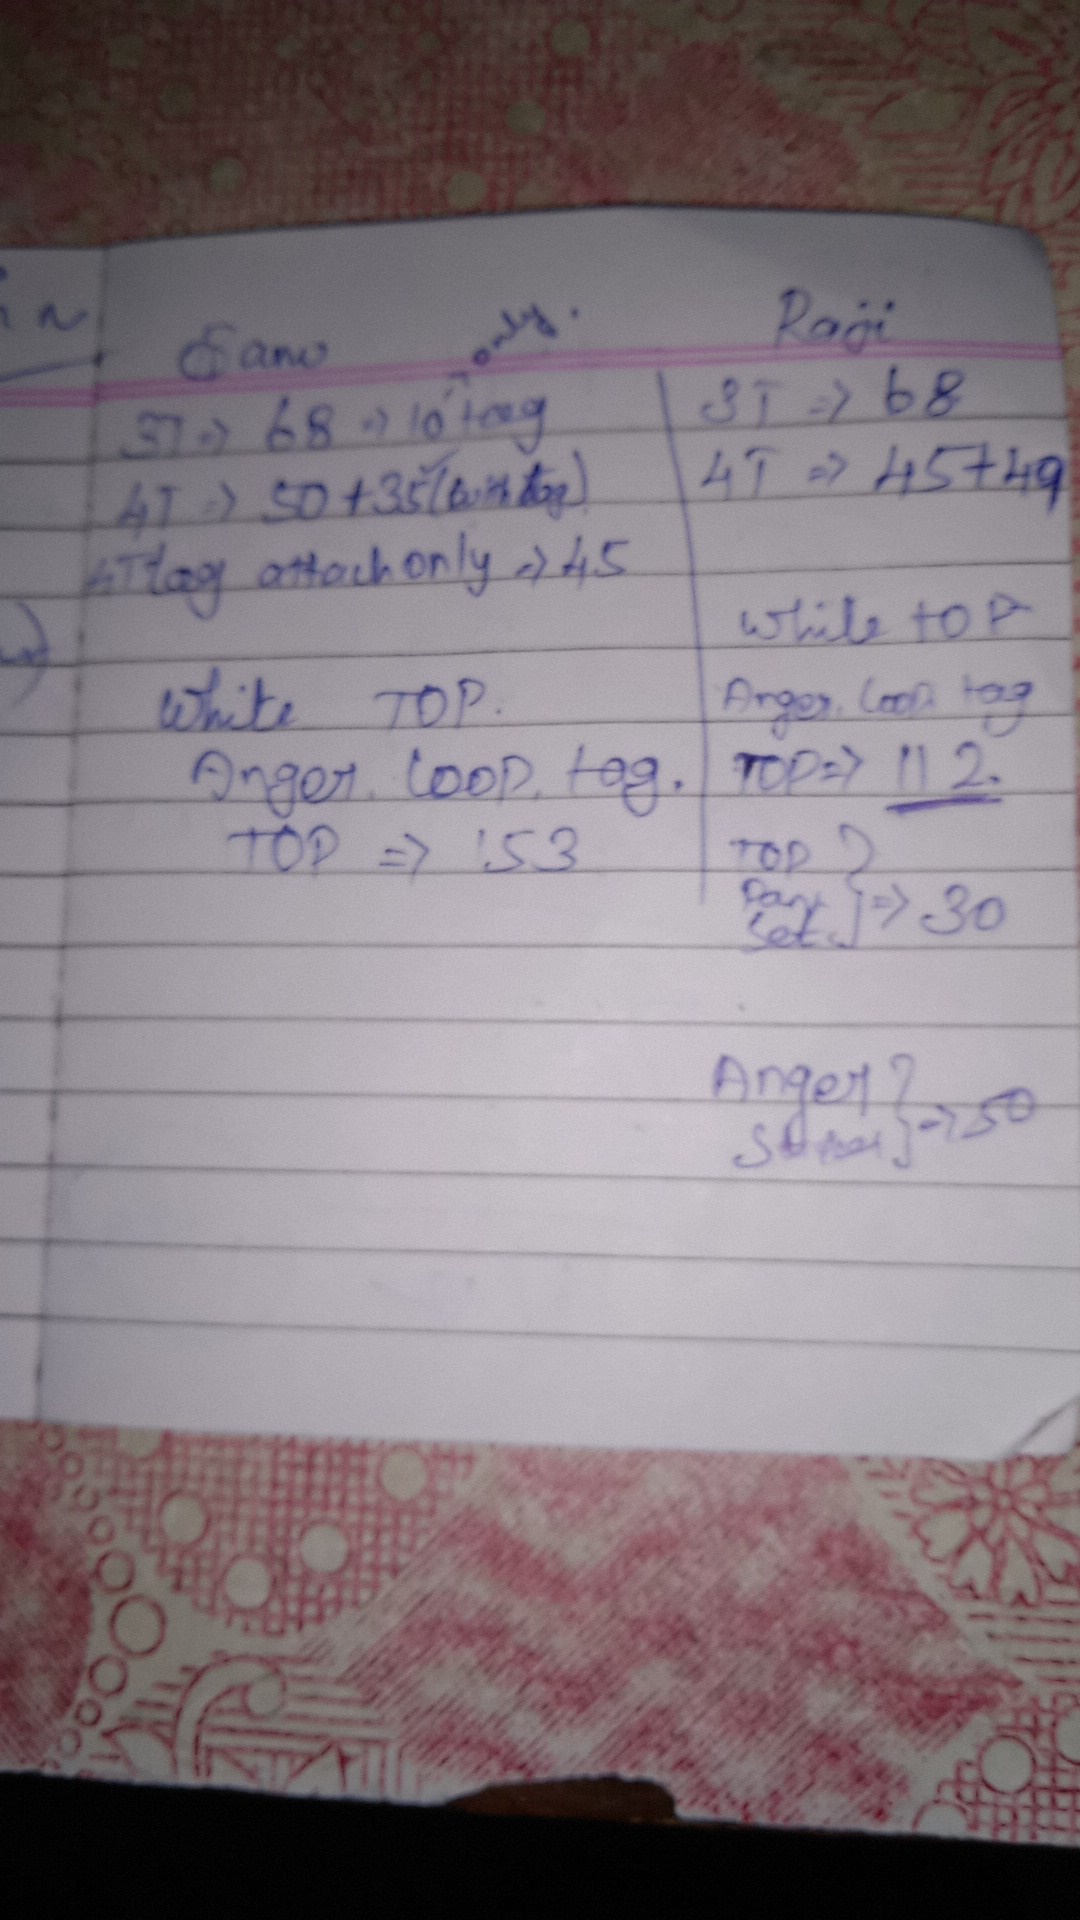 Sanu
3T => 68 => 10 tag only.
4T => 50+35 (with tag)
4T tag attach only => 45
White TOP.
Anger. Loop. tag.
TOP => 153
Raji
3T => 68
4T => 45+49
While TOP
Anger. Loop tag
TOP => 112.
TOP
Set. } => 30
Anger
} => 50